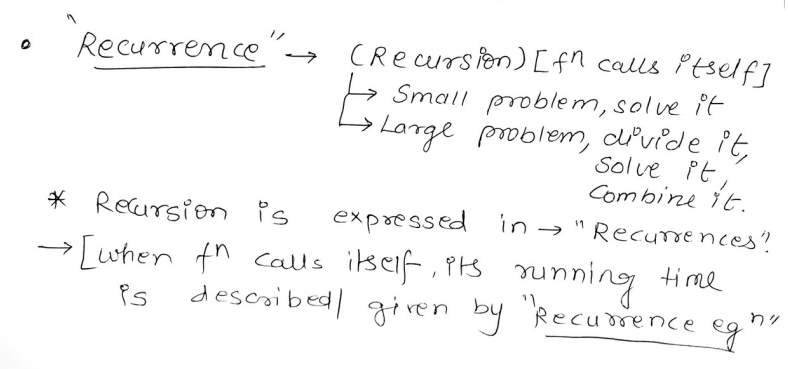 • "Recurrence" → (Recursion) [fn calls itself]
↳ Small problem, solve it
↳ Large problem, divide it,
Solve it,
Combine it.
* Recursion is expressed in → "Recurrences".
→ [when fn calls itself, its running time
is described/ given by "Recurrence eqn"